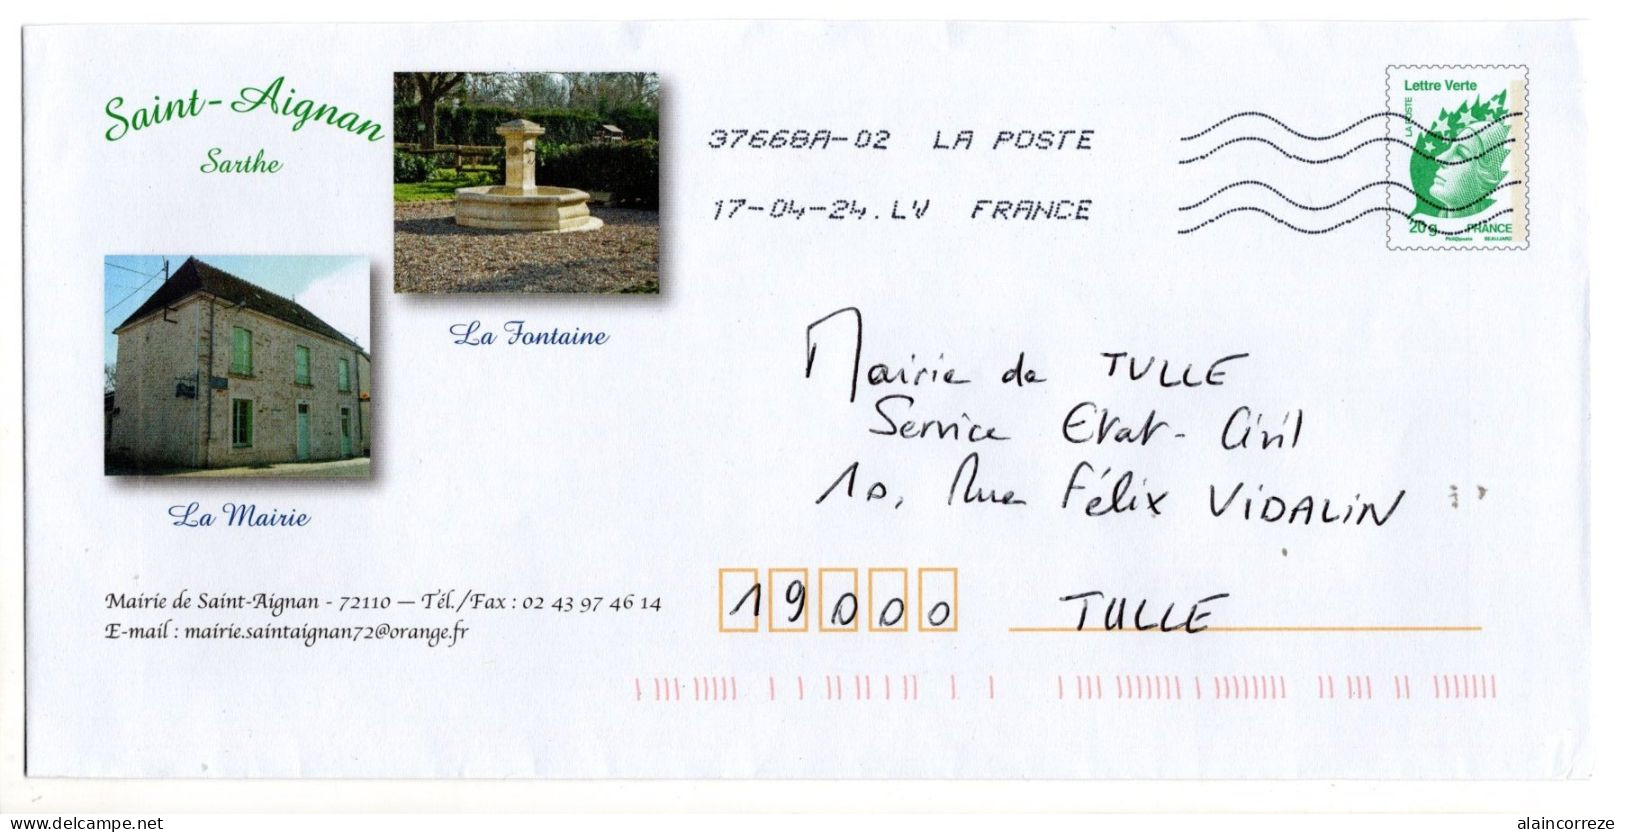 Saint-Aignan
Sarthe
La Fontaine
La Mairie
Mairie de Saint-Aignan - 72110 — Tél./Fax : 02 43 97 46 14
E-mail : mairie.saintaignan72@orange.fr
37668A-02 LA POSTE
17-04-24.LV FRANCE
Lettre Verte
LA POSTE
20g FRANCE
Phil@poste BEAUJARD
Mairie de TULLE
Service Etat-Civil
10, Rue Félix VIDALIN
19000 TULLE
www.delcampe.net
alaincorreze